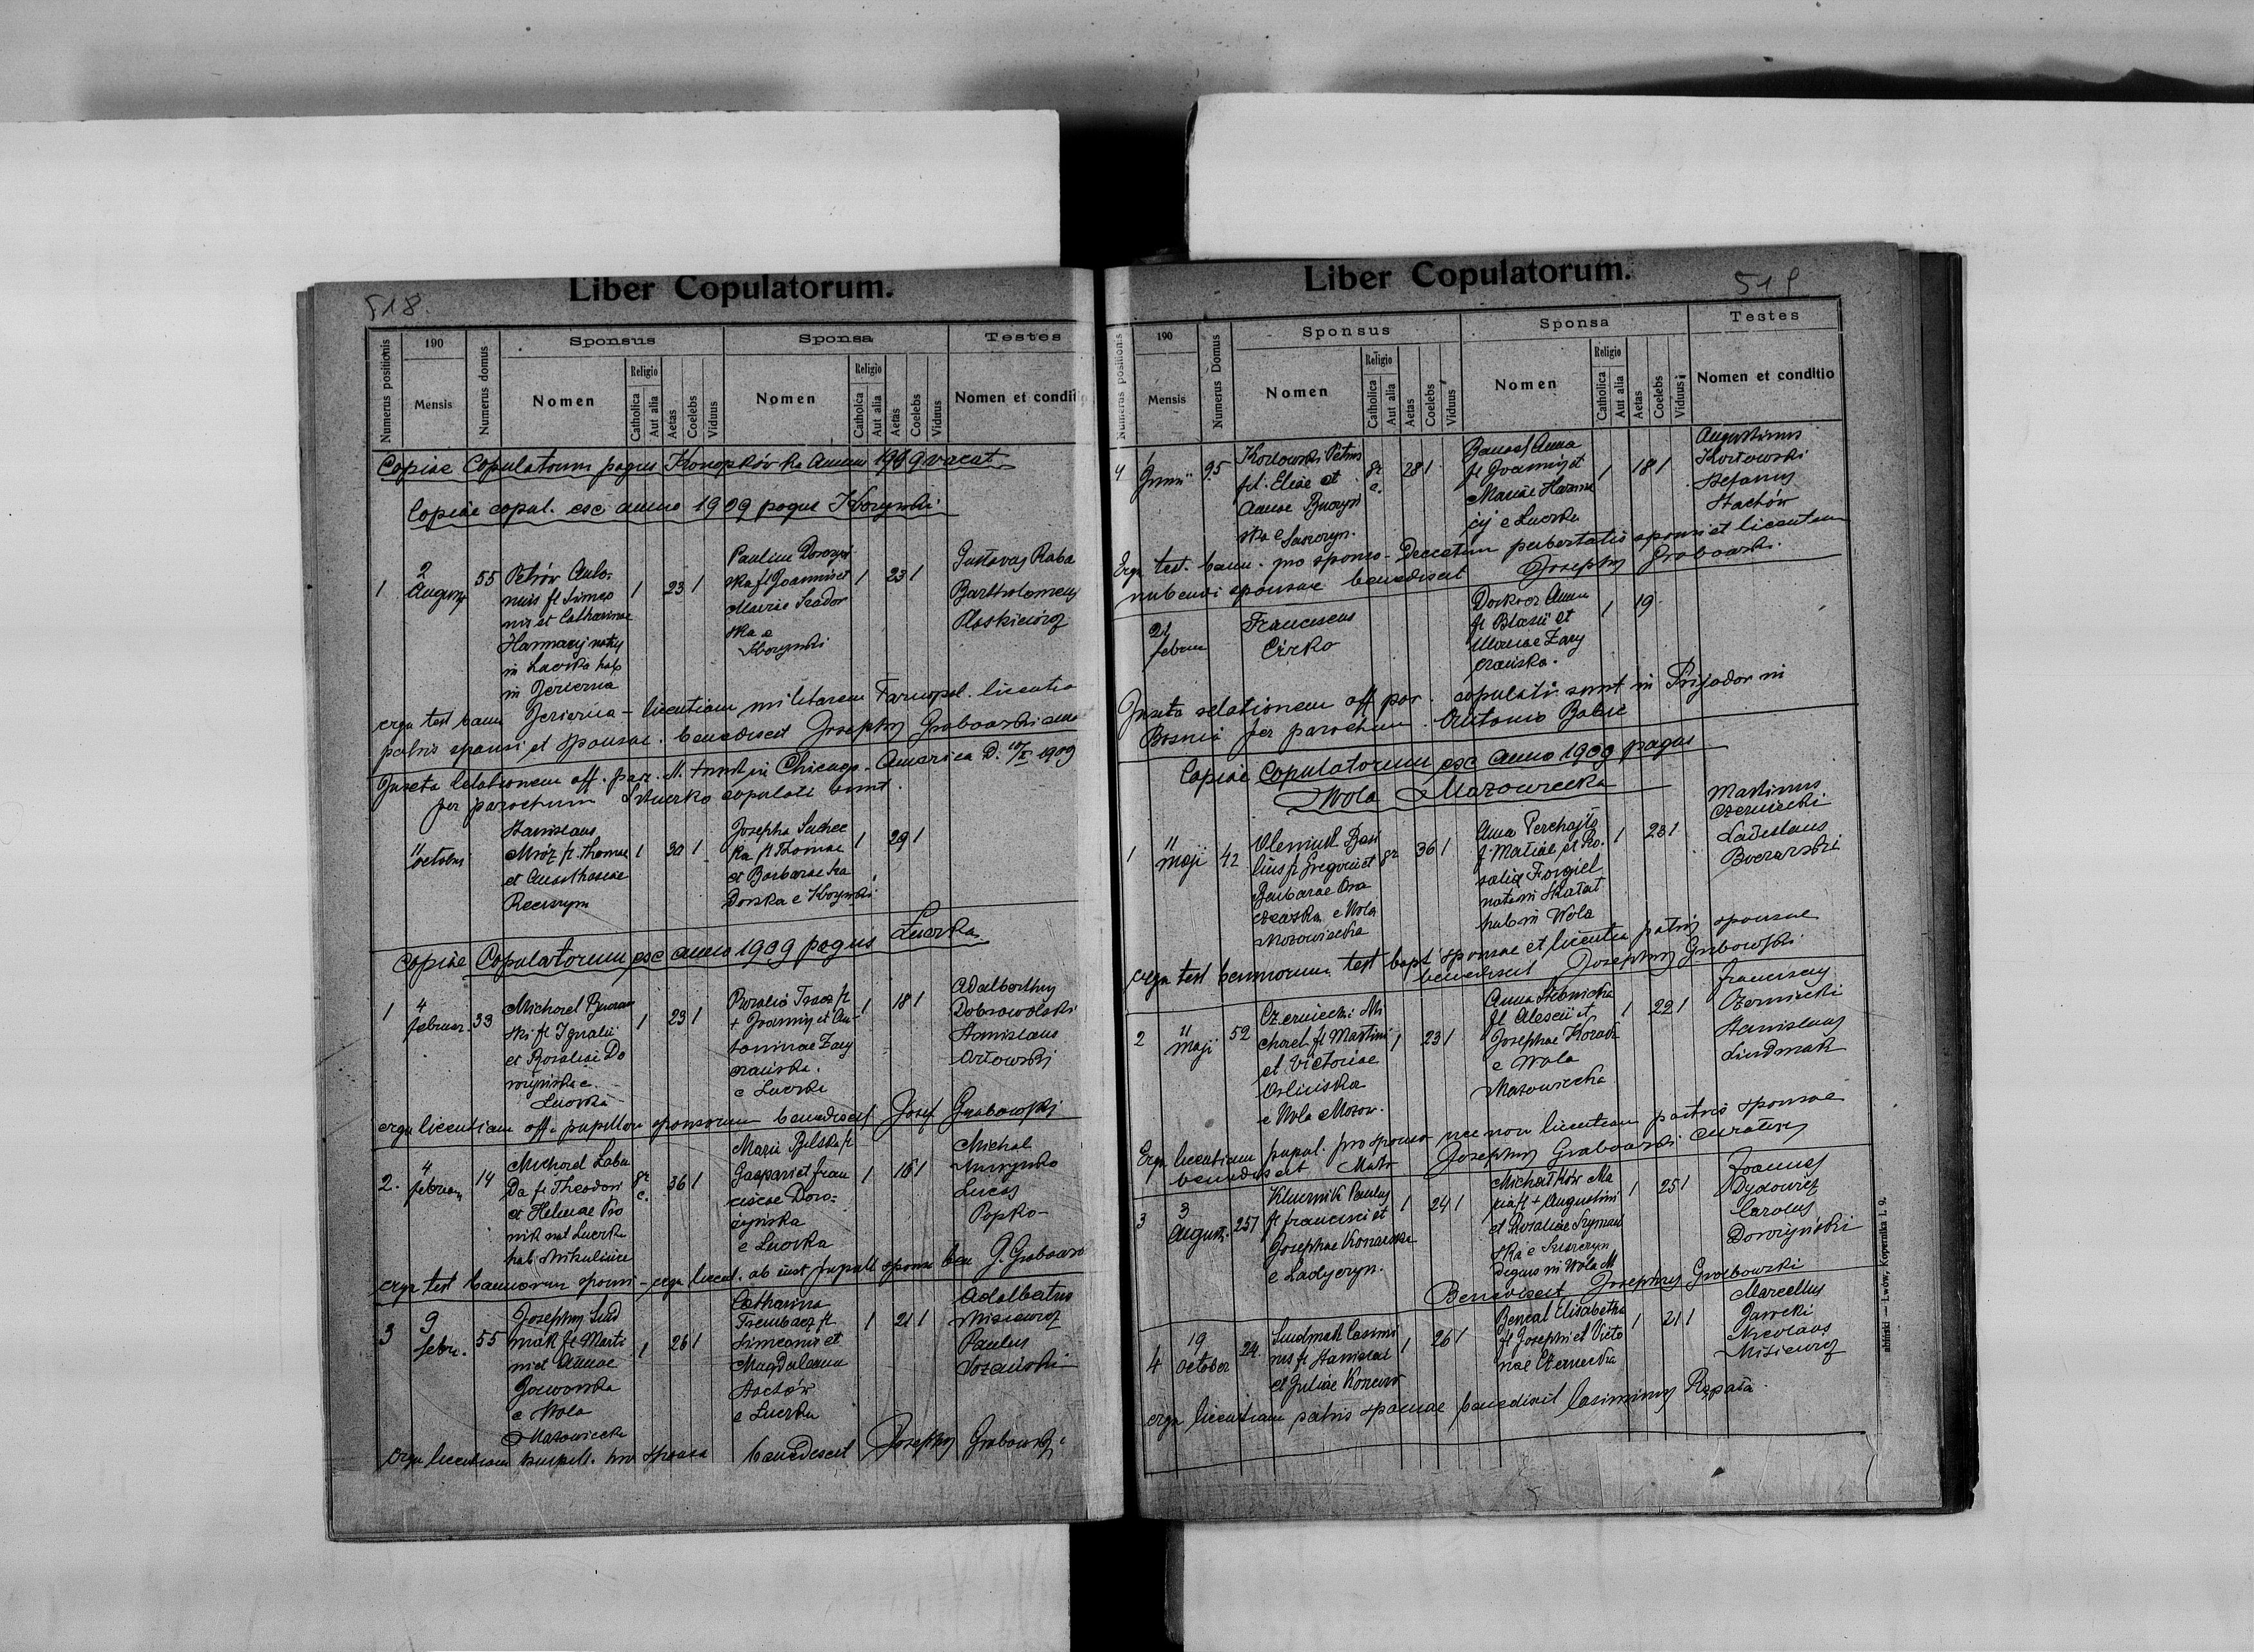 518.
Liber Copulatorum.
Numerus positionis
190
Mensis
Numerus domus
Sponsus
Nomen
Religio
Catholica
Aut alia
Aetas
Coelebs
Viduus
Sponsa
Nomen
Religio
Catholica
Aut alia
Aetas
Coelebs
Viduus
Testes
Nomen et conditi
Copiae Copulatorum pagus Konopkówka Anno 1909 vacat
Copiae copul. esc anno 1909 pagus
1
2
August
55
Petrów Anto-
nius fl Simeo
nis et Catharinae
Harmacij natus
in Łuczka hab
in Jezierna
1
23 1
Paulina Doroszyń
ska fl Joannis et
Mariae Szador
ska e
1
23 1
Gustavus Raba
Bartholomeus
erga test bann Jezierna - licentiam militarem Tarnopol. licentia
patris sponsi et sponsae. benedixit Josephus Grabowski
Juxta relationem off. par. in Chicago. America D. 10/X 1909
per parochum copulati sunt.
11
octobris
Stanislaus
Mróz fl. Thomae
et Anasthasiae
1
30 1
Josepha Suchec
ka fl Thomae
et Barbarae Sza
dorska e
1
29 1
Copiae Copulatorum esc anno 1909 pagus Łuczka
1
4
februar.
33
Michael
ski fl Ignatii
et Rosaliae Do
roszyńska e.
Łuczka
1
23 1
Rosalia Tracz fl
+ Joannis et An-
toninae Zary
czańska.
e Łuczka
1
18 1
Adalbertus
Dobrowolski
Stanislaus
Orłowski
erga licentiam off. pupillor sponsorum benedixit Josef Grabowski
2.
4
februar
14
Michael Łabu
da fl Theodori
et Helenae Ro
mik nat Łuczka
hab Mikulińce
gr
c.
36 1
Maria Bilska fl
Gaspari et Fran
ciscae Doro-
szyńska
e Łuczka
1
16 1
Michal
Lucas
Popko
erga test bannorum sponsi - erga licent. ab inst pupill sponsae ben J. Grabowski
3
9
febr.
55
Josephus Lind
mak fl Marti
ni et Annae
Jaworska
e Wola
Mazowiecka
1
26 1
Catharina
Trembacz fl
Simeonis et
Magdalena
Stachów
e Łuczka
1
21 1
Adalbertus
Misiewicz
Paulus
Erga licentiam pupill. pro sponsa benedixit Josephus Grabowski
519
Liber Copulatorum.
Numerus positionis
190
Mensis
Numerus Domus
Sponsus
Nomen
Religio
Catholica
Aut alia
Aetas
Coelebs
Viduus
Sponsa
Nomen
Religio
Catholica
Aut alia
Aetas
Coelebs
Viduus
Testes
Nomen et conditio
4
1
Junii
95
Kozłowski Petrus
fil. Eliae et
Annae
gr
c.
28 1
Banas Anna
fl Joannis et
Mariae Harma
cij e Łuczka
1
18 1
Augustinus
Kozłowski
Stefanus
Stachów
Erga test. bann. pro sponso - Decretum pubertatis sponsi et licentiam
nubendi sponsae benedixit Josephus Grabowski.
21
febru
Franciscus
Circko
Anna
fl Blasii et
Mariae Zary
czańska.
1
19
Juxta relationem off par. copulati sunt in Prijedor in
Bosnia per parochum. Antonio
Copiae Copulatorum esc Anno 1909 pagus
Wola Mazowiecka
1
11
Maji
42
Oleniuk Basi
lius fl Gregorii et
Barbarae
e Wola
Mazowiecka
gr
36 1
Anna Perchajło
f Matiae et Ro.
salia Forgiel
nata in Skałat
hab in Wola
1
23 1
Martinus
Czerniecki
Ladislaus
erga test bannorum test bapt sponsae et licentia patris sponsae
benedixit Josephus Grabowski
2
11
Maji
52
Czerniecki Mi
chael fl Martini
et Victoriae
Orlińska
e Wola Mazow.
1
23 1
Anna
fl Alexii et
Josephae
e Wola
Mazowiecka
1
22 1
Franciscus
Czerniecki
Stanislaus
Lindmak
Erga licentiam pupil. pro sponso nec non licentiam patris sponsae
benedixit Josephus Grabowski curatus
3
3
August.
251
Paulus
fl Francisci et
Josephae Konarska
e Ładyczyn.
1
24 1
Michałków Ma
ria fl + Augustini
et Rosaliae Szymań
ska e
degens in Wola M
1
25 1
Joannes
Dydowicz
Carolus
Doroszyński
Benedixit Josephus Grabowski
4
19
october
24.
Lindmak Casimi
rus fl Stanislai
et Juliae
1
26 1
Bencal Elisabetha
fl Josephi et Victo
riae Czerniecka
1
21 1
Marcellus
Nicolaus
Misiewicz
erga licentiam patris sponsae benedixit Casimirus Rzpała
— Lwów, Kopernika l. 9.